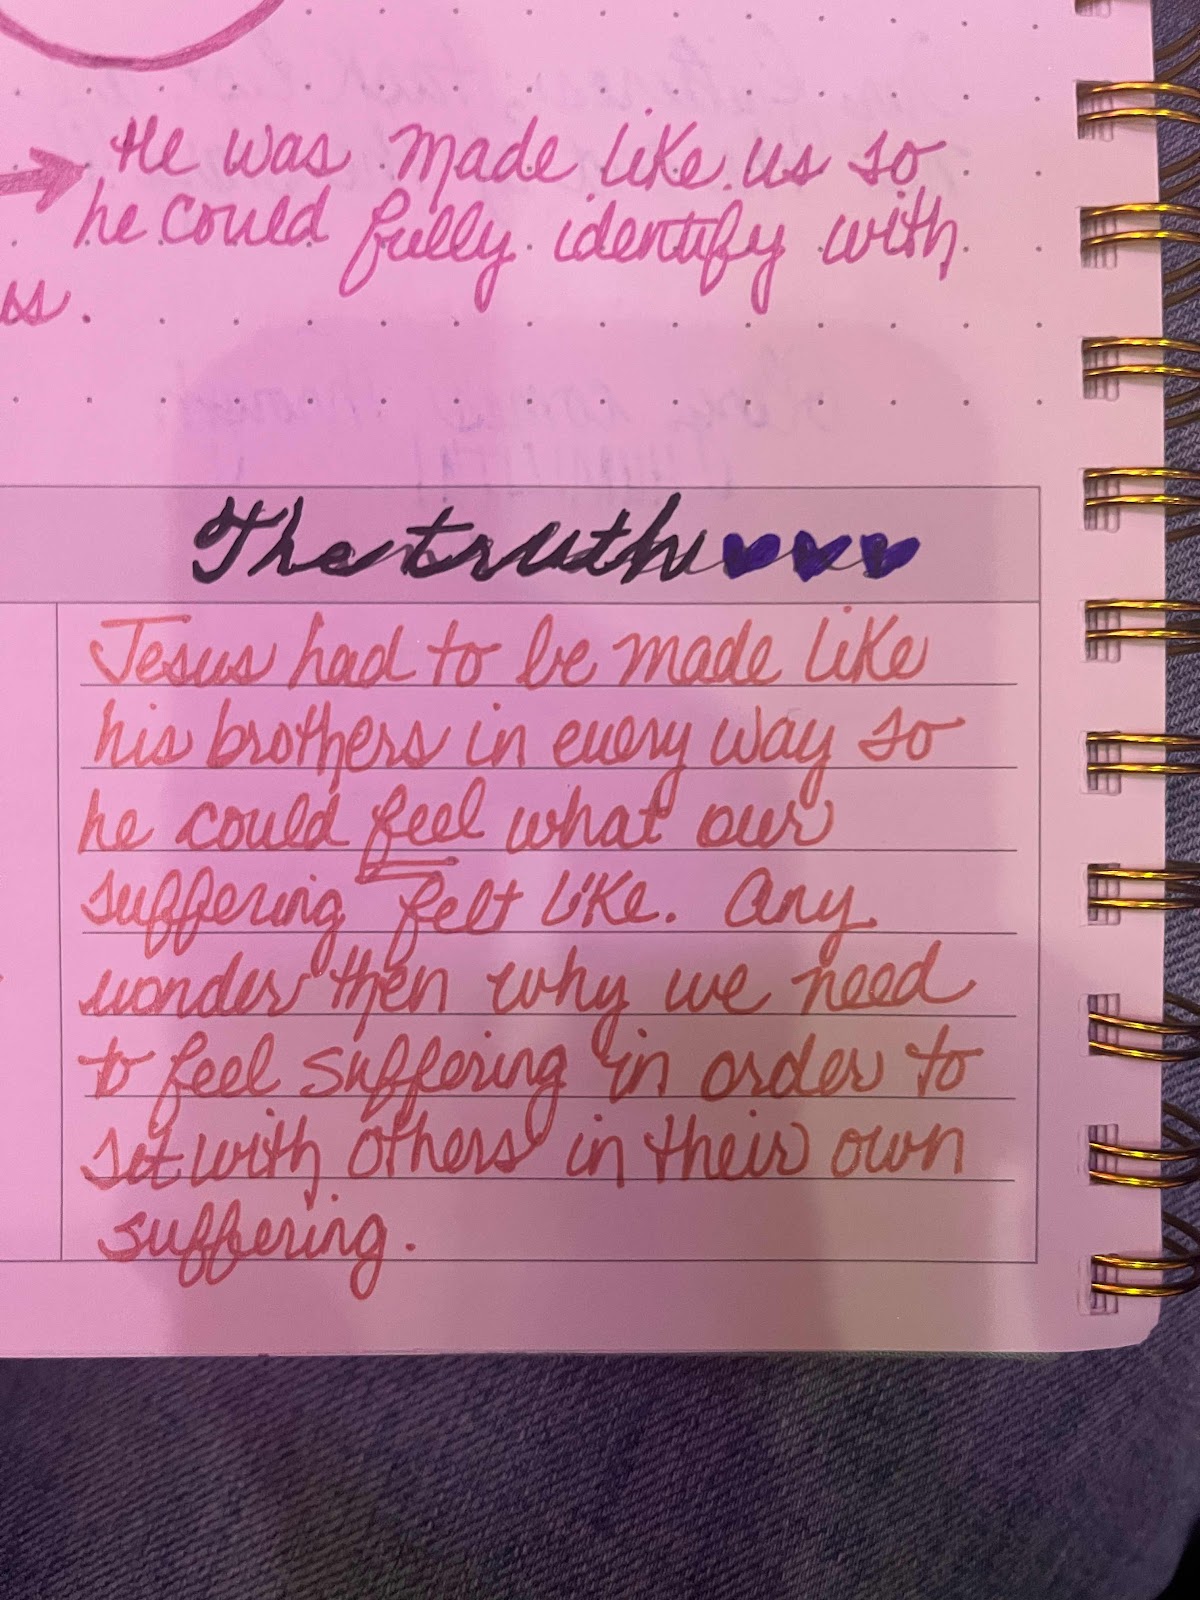 He was made like us so
he could fully identify with
ss.
The truth
Jesus had to be made like
his brothers in every way so
he could feel what our
suffering felt like. Any
wonder then why we need
to feel suffering in order to
sit with others in their own
suffering.